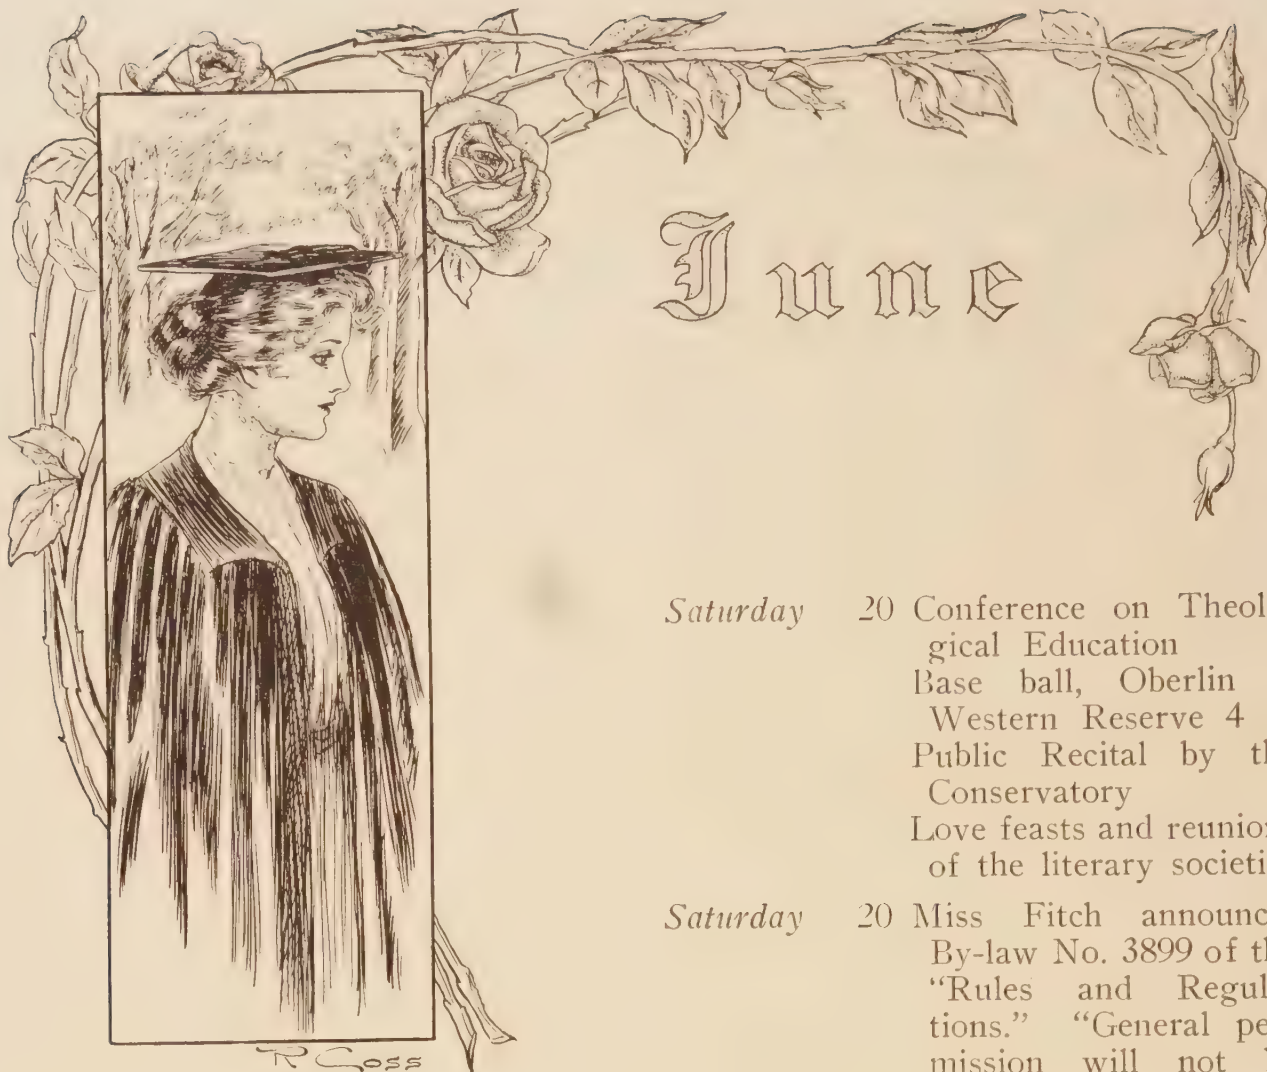 June
Saturday 20 Conference on Theol
gical Education
Base ball, Oberlin
Western Reserve 4
Public Recital by th
Conservatory
Love feasts and reunion
of the literary societi
Saturday 20 Miss Fitch announc
By-law No. 3899 of th
“Rules and Regul
tions.” “General pe
mission will not
R Goss